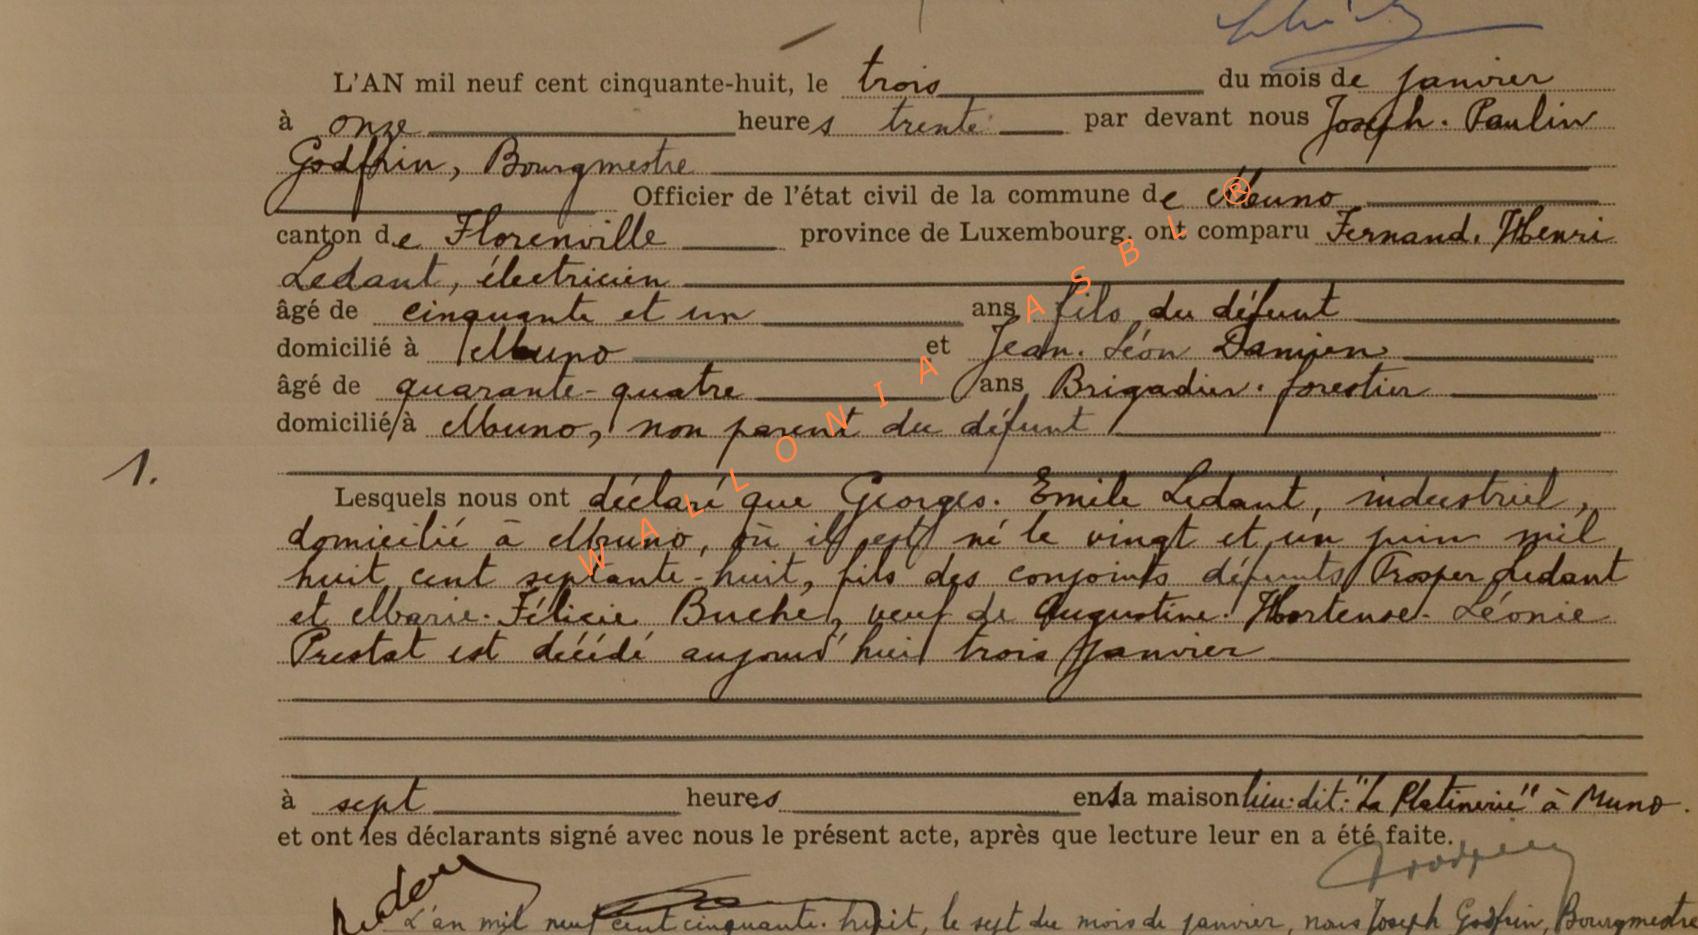 L'AN mil neuf cent cinquante-huit, le trois du mois de janvier
à onze heures trente par devant nous Joseph-Paulin
Godfrin, Bourgmestre
Officier de l'état civil de la commune de Muno
canton de Florenville province de Luxembourg, ont comparu Fernand-Henri
Ledant, électricien
âgé de cinquante et un ans fils du défunt
domicilié à Muno et Jean-Léon Damien
âgé de quarante-quatre ans Brigadier-forestier
domicilié à Muno, non parent du défunt
1.
Lesquels nous ont déclaré que Georges-Emile Ledant, industriel,
domicilié à Muno, où il est né le vingt et un juin mil
huit cent septante-huit, fils des conjoints défunts Prosper Ledant
et Marie-Félicie Buchet, veuf de Augustine-Hortense-Léonie
Prestat est décédé aujourd'hui trois janvier
à sept heures en sa maison lieu-dit "La Platinerie" à Muno.
et ont les déclarants signé avec nous le présent acte, après que lecture leur en a été faite.
L'an mil neuf cent cinquante-huit, le sept du mois de janvier, nous Joseph Godfrin, Bourgmestre
WALLONIA ASBL ®